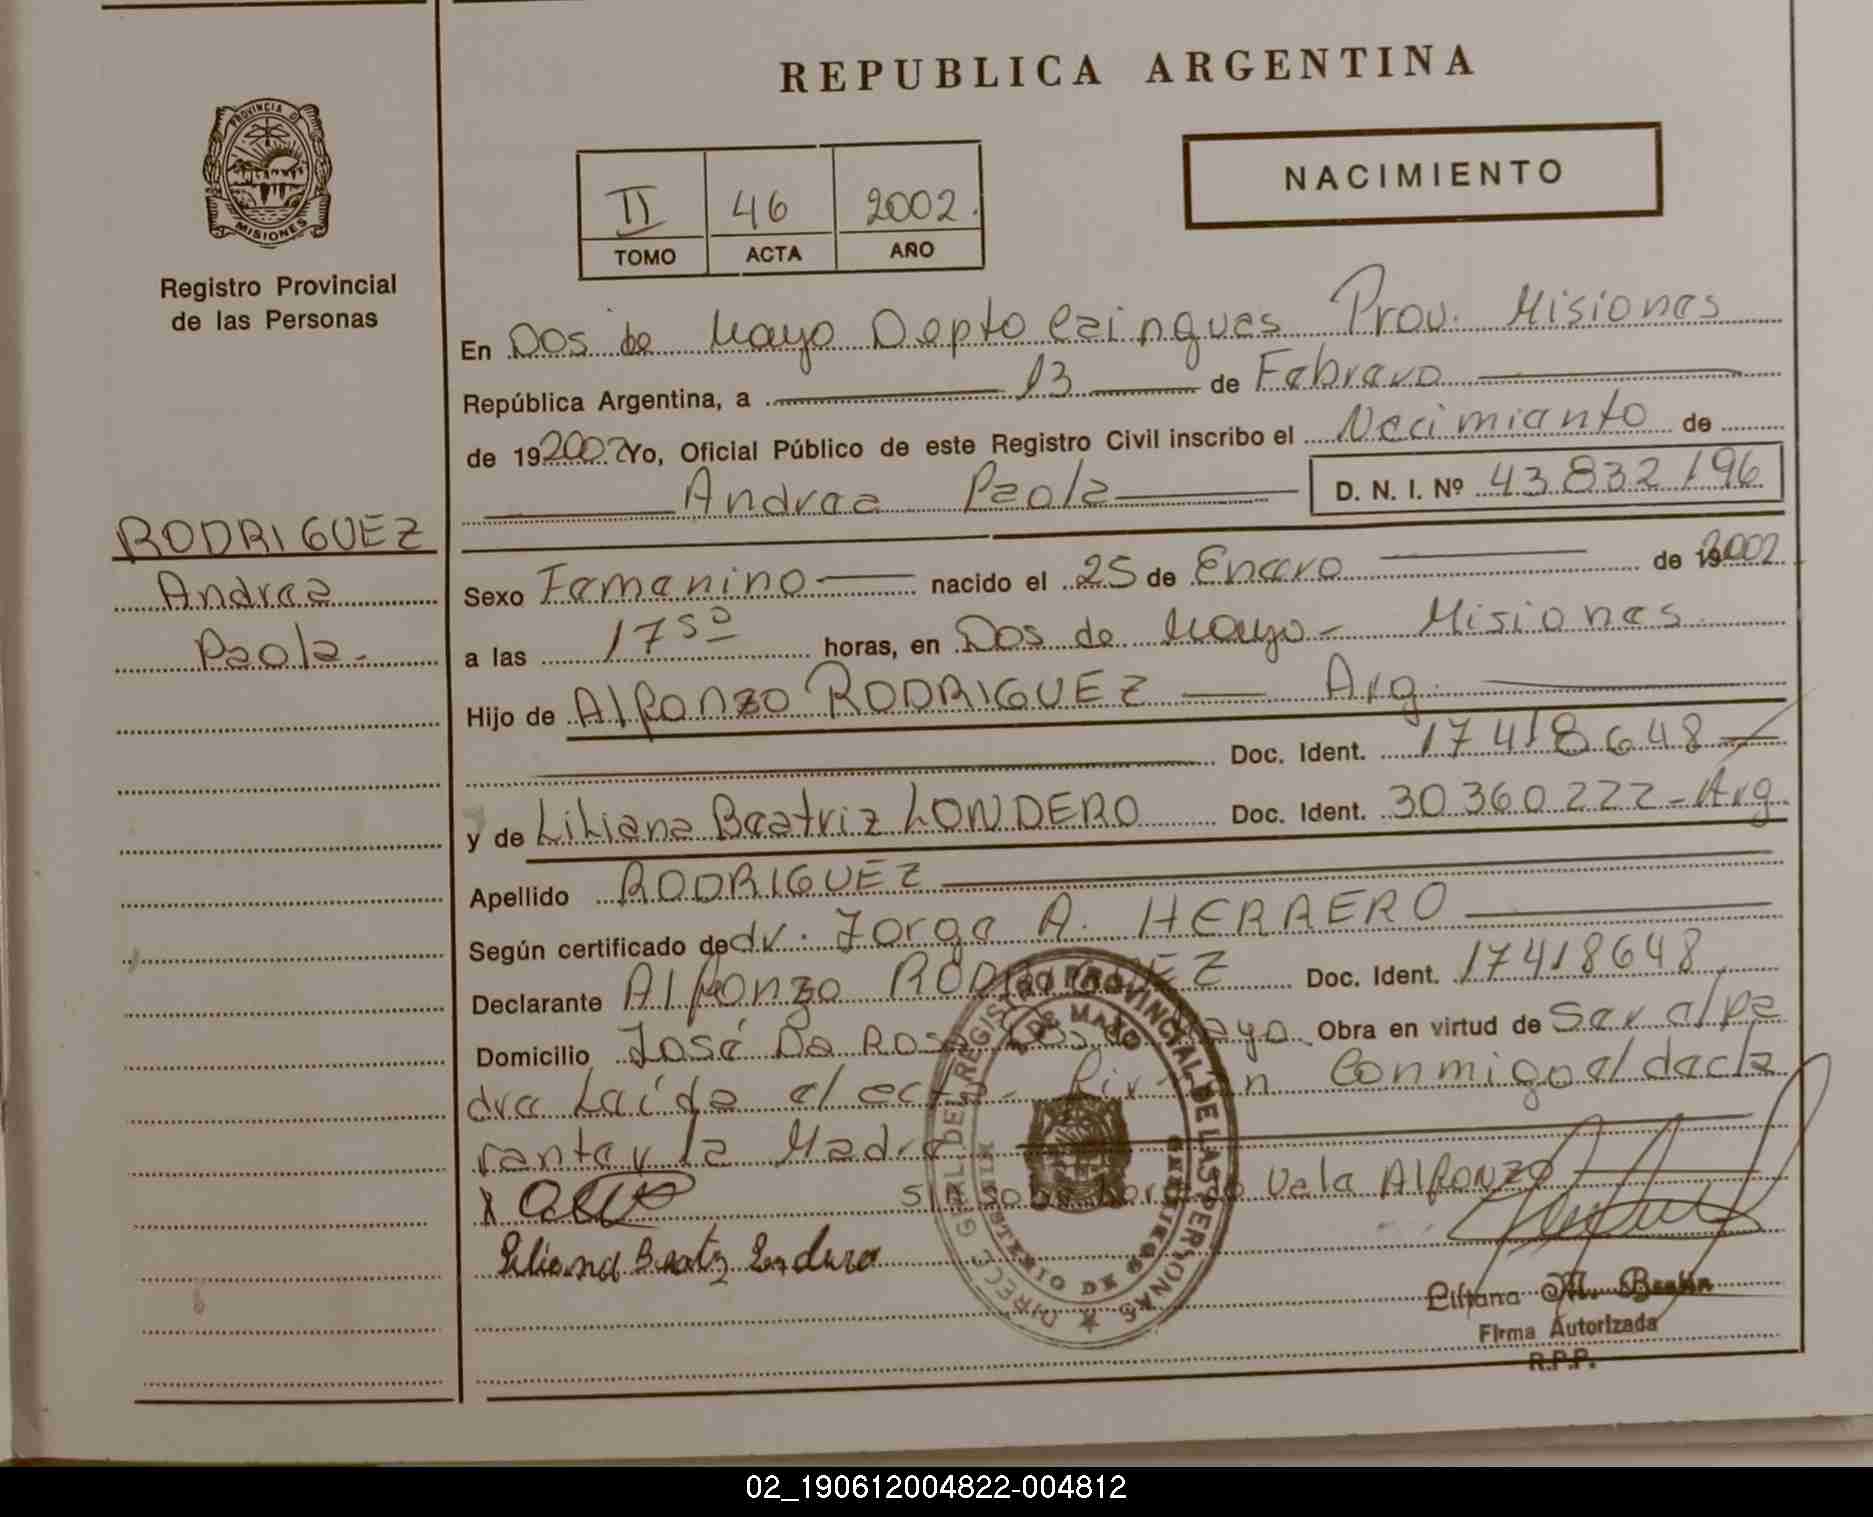 REPUBLICA ARGENTINA
PROVINCIA DE
MISIONES
Registro Provincial
de las Personas
II 46 2002.
TOMO ACTA AÑO
NACIMIENTO
RODRIGUEZ
Andrea
Paola-
En Dos de Mayo Depto Cainguas Prov. Misiones
República Argentina, a 13 de Febrero
de 192002 Yo, Oficial Público de este Registro Civil inscribo el Nacimiento de
Andrea Paola D. N. I. Nº 43832196
Sexo Femenino nacido el 25 de Enero de 192002
a las 17 50 horas, en Dos de Mayo - Misiones
Hijo de Alfonzo RODRIGUEZ Arg.
Doc. Ident. 17418648
y de Liliana Beatriz LONDERO Doc. Ident. 30360222-Arg.
Apellido RODRIGUEZ
Según certificado de dr. Jorge A. HERRERO
Declarante Alfonzo RODRIGUEZ Doc. Ident. 17418648
Domicilio José Da Rosa Dos de Mayo Obra en virtud de Ser el pa
dre Leída el acta- Firman Conmigo el decla
rante y la Madre
Vale Alfonzo
Liliana Beatriz Londero
DIRECC. GRAL DEL REGISTRO PROVINCIAL DE LAS PERSONAS
2 DE MAYO
MINISTERIO DE GOBIERNO
Liliana M.
Firma Autorizada
R.P.P.
02_190612004822-004812